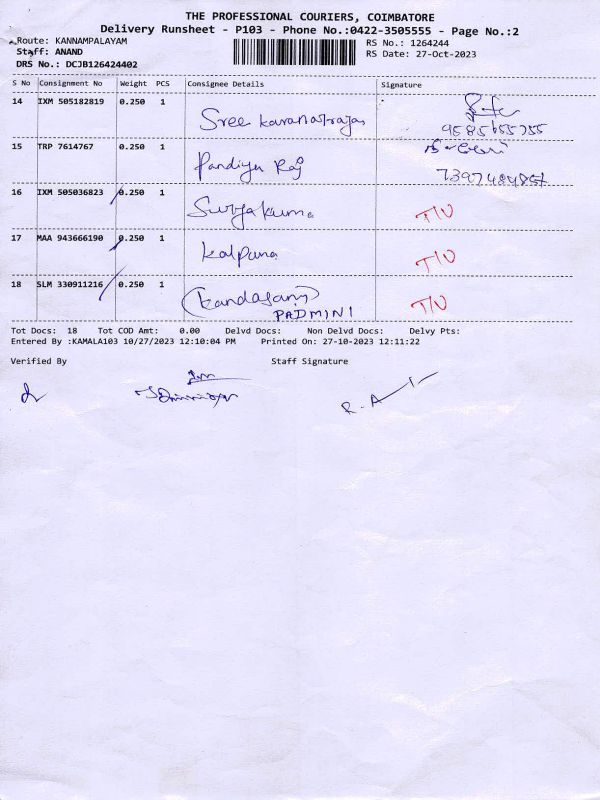 THE PROFESSIONAL COURIERS, COIMBATORE
Delivery Runsheet - P103 - Phone No.:0422-3505555 - Page No.:2
Route: KANNAMPALAYAM RS No.: 1264244
Staff: ANAND RS Date: 27-Oct-2023
DRS No.: DCJB126424402
S No Consignment No Weight PCS Consignee Details Signature
14 IXM 505182819 0.250 1
Sree
9585655755
15 TRP 7614767 0.250 1
Pandiya Raj
16 IXM 505036823 0.250 1
Suryakuma
T/U
17 MAA 943666190 0.250 1
Kalpana
T/U
18 SLM 330911216 0.250 1
(Kandasamy)
T/U
PADMINI
Tot Docs: 18 Tot COD Amt: 0.00 Delvd Docs: Non Delvd Docs: Delvy Pts:
Entered By :KAMALA103 10/27/2023 12:10:04 PM Printed On: 27-10-2023 12:11:22
Verified By Staff Signature